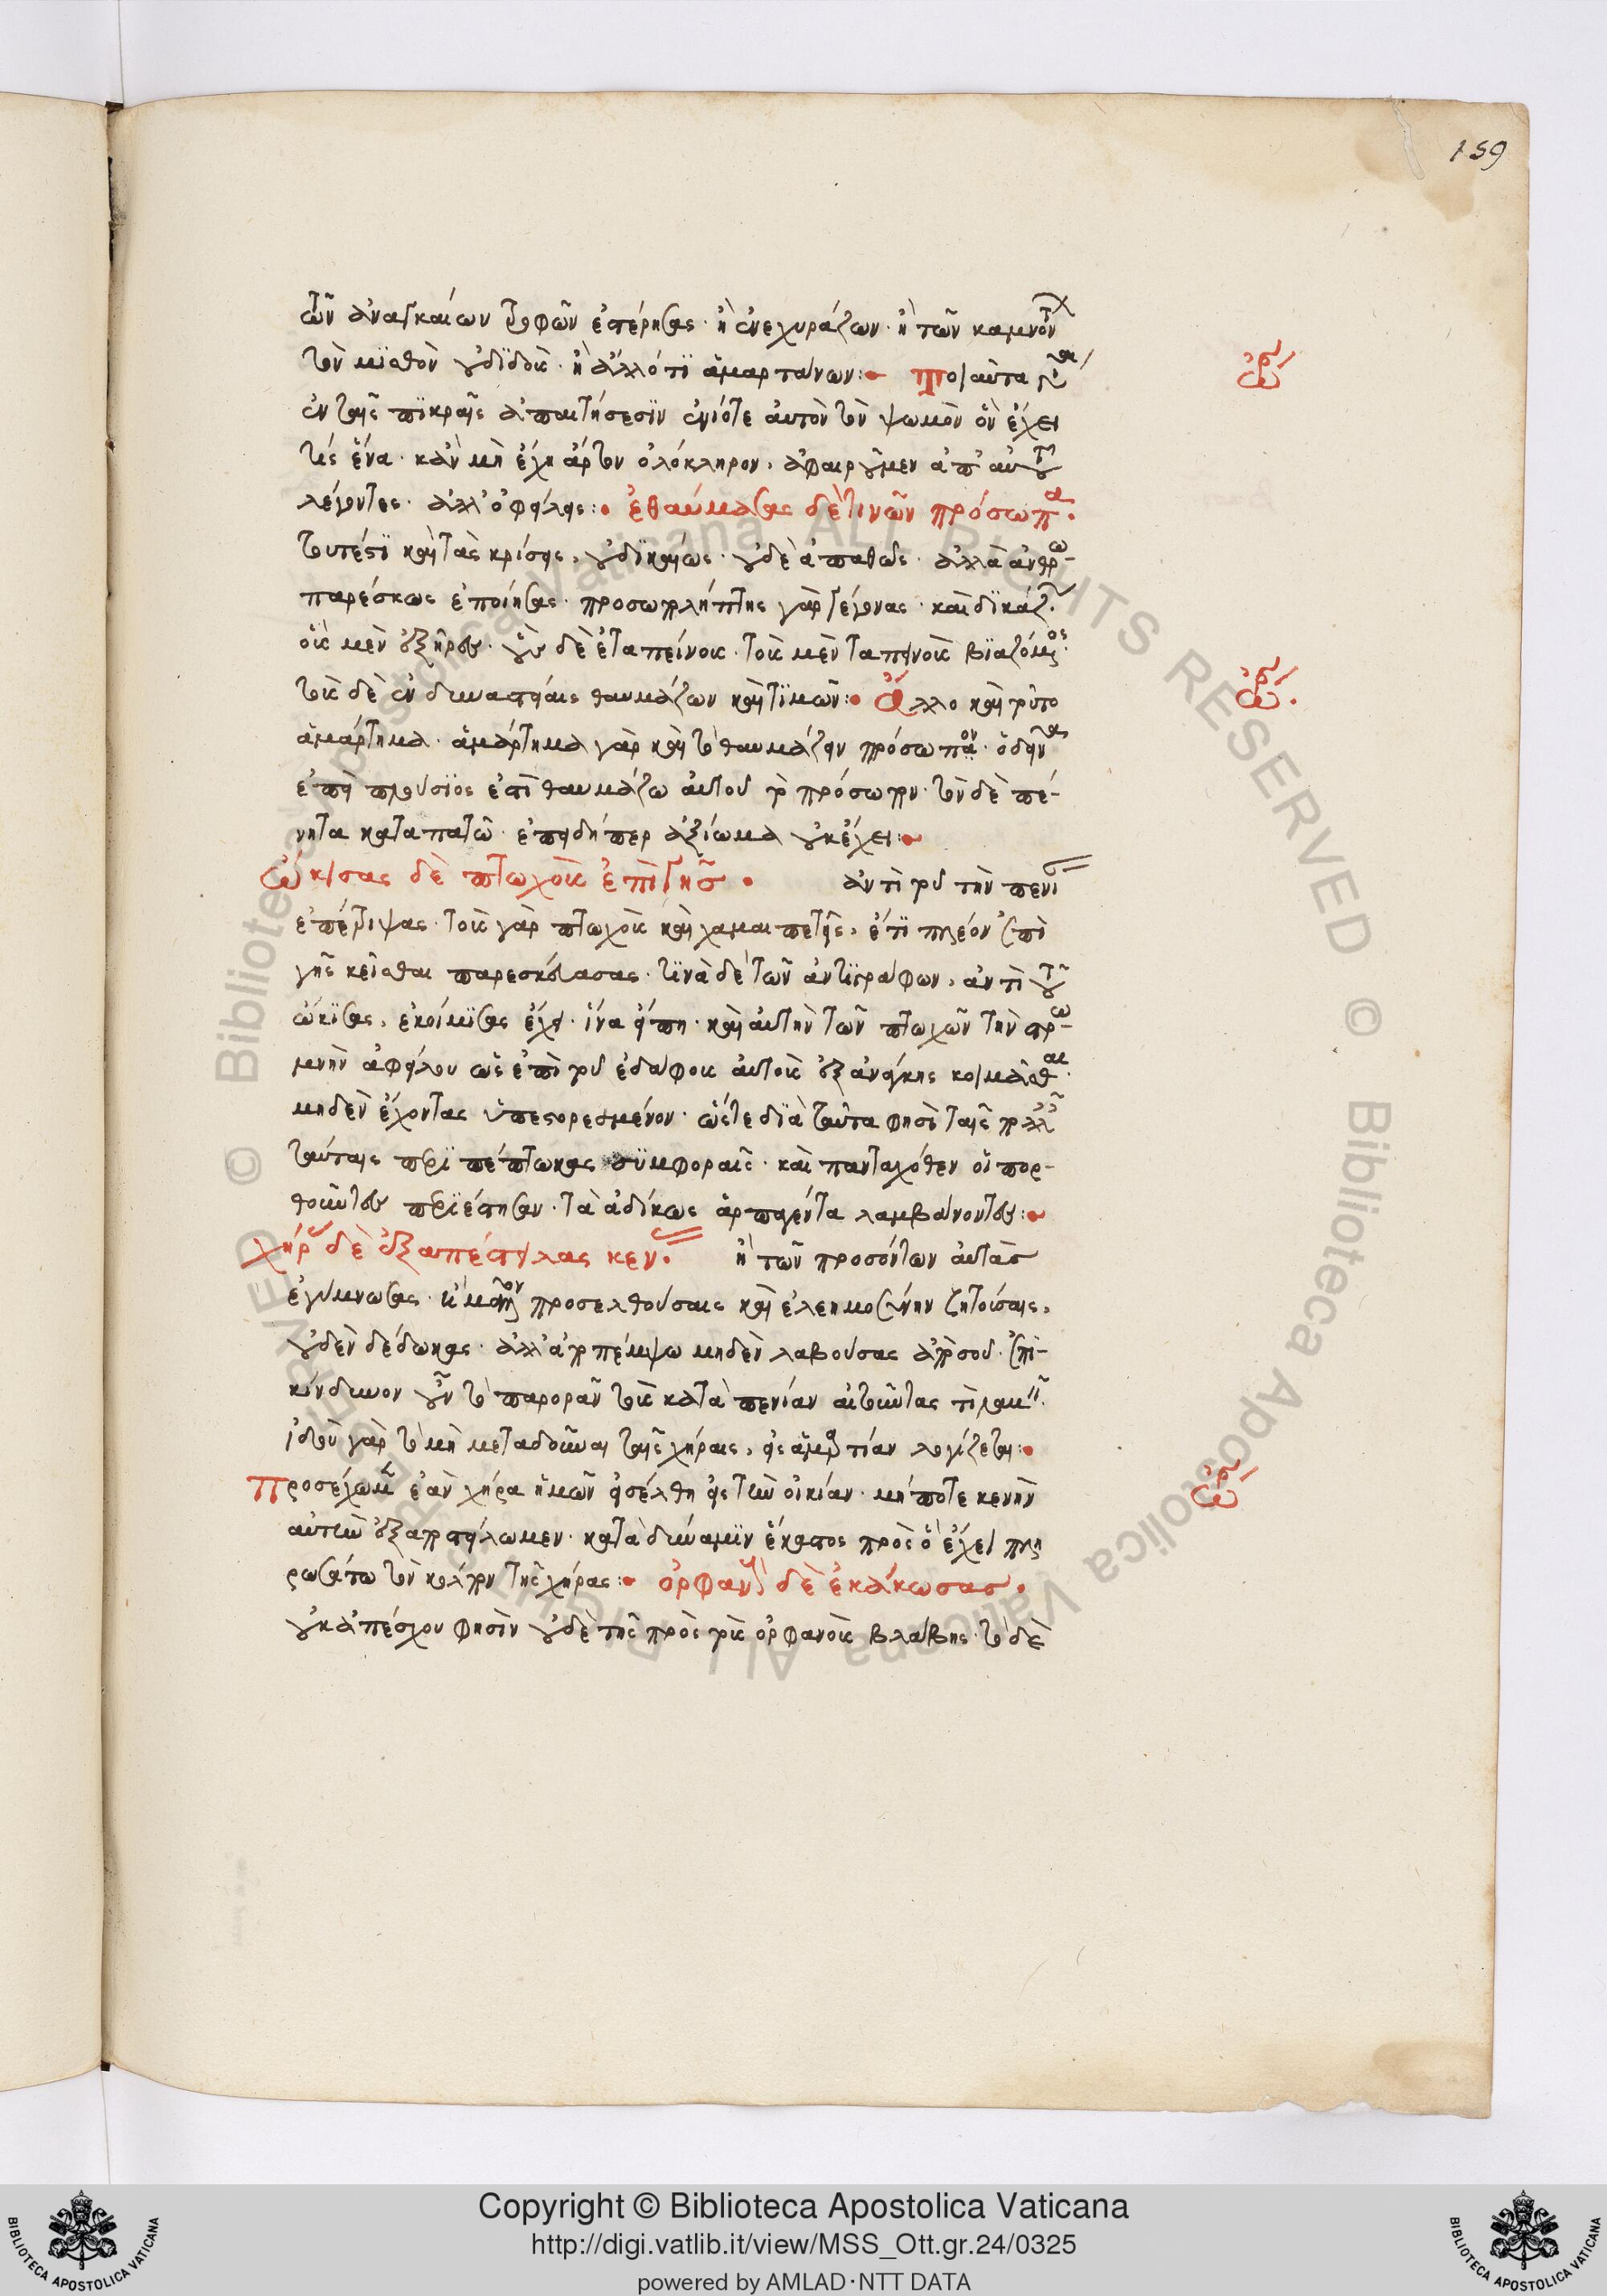 159
τῶν ἀναγκαίων τροφῶν ἐστέρησας· ἢ ἐνεχυράζων· ἢ τῶν καμνόντ
τὸν μϊσθὸν οὐδϊδοὺς· ἢ ἄλλό τϊ ἁμαρτάνων:
ἐν ταῖς πϊκραῖς ἀπαιτήσεσϊν ἐνίοτε αὐτὸν τὸν ψωμὸν ὃν ἔχει
τϊς ἕνα· κἂν μὴ ἔχη ἄρτον ὁλόκληρον, ἀφαιρούμεν ἀπ' αὐτοῦ
λέγοντες· ἀλλ' ὀφείλεις: ἐθαύμασας δὲ τινῶν πρόσωπα.
τουτέστϊ καὶ τὰς κρίσεις, οὐ δϊκαίως· οὐδὲ ἀπαθῶς· ἀλλὰ ἀνθρω-
παρέσκως ἐποίησας· προσωπολήπτης γὰρ γέγονας· καὶ δϊκάζ
οὓς μὲν ἐξῆρες· οὓς δὲ ἐταπείνους· τοὺς μὲν ταπεινοὺς βϊαζόμενος·
τοὺς δὲ ἐν δυναστείαις θαυμάζων καὶ τϊμῶν: ἄλλο καὶ τοῦτο
ἁμάρτημα· ἁμάρτημα γὰρ καὶ τὸ θαυμάζειν πρόσωπον·
ἐπεὶ πλούσϊός ἐστϊ θαυμάζω αὐτοῦ τὸ πρόσωπον· τὸν δὲ πέ-
νητα καταπατῶ· ἐπειδήπερ ἀξίωμα οὐκ ἔχει:
ᾤκισας δὲ πτωχοὺς ἐπὶ γῆς. ἀντὶ τοῦ τὴν πενί
ἐπέτριψας· τοὺς γὰρ πτωχοὺς καὶ χαμαιπετεῖς, ἔτϊ πλέον ἐπὶ
γῆς κεῖσθαι παρεσκεύασας· τϊνὰ δὲ τῶν ἀντϊγράφων, ἀντὶ τοῦ
ᾤκϊσας, ἐκοίμϊσας ἔχει· ἵνα εἴπη· καὶ αὐτὴν τῶν πτωχῶν τὴν στρω-
μνὴν ἀφείλου ὡς ἐπὶ τοῦ ἐδάφους αὐτοὺς ἐξ ἀνάγκης κοιμᾶσθαι
μηδὲν ἔχοντας ὑπεστορεσμένον· ὥστε δϊὰ ταῦτα φησὶ ταῖς πολλαῖς
ταύταις περϊπέπτωκας σϋμφοραῖς· καὶ πανταχόθεν οἱ πορ-
θοῦντες περϊέστησαν· τὰ ἀδίκως ἁρπαγέντα λαμβάνοντες:
χήρας δὲ ἐξαπέστειλας κεν. ἢ τῶν προσόντων αὐτὰς
ἐγύμνωσας· προσελθούσαις καὶ ἐλεημοσύνην ζητούσαις,
οὐδὲν δέδωκας· ἀλλ' ἀποπέμψω μηδὲν λαβούσας ἀπὸ σοῦ· ἐπι-
κίνδυνον οὖν τὸ παρορᾶν τοὺς κατὰ πενίαν αἰτοῦντας τὶ λαβεῖν
ἰδοὺ γὰρ τὸ μὴ μεταδοῦναι ταῖς χήραις, εἰς ἁμαρτίαν λογίζεται:
προσέχωμεν ἐὰν χήρα ἡμῶν εἰσέλθη εἰς τὴν οἰκίαν· μήποτε κενὴν
αὐτὴν ἐξαποστείλωμεν· κατὰ δύναμϊν ἕκαστος πρὸς ὃ ἔχει πλη
ρωσάτω τὸν κόλπον τῆς χήρας: ὀρφανοὺς δὲ ἐκάκωσας.
οὐκ ἀπέσχου φησὶν οὐδὲ τῆς πρὸς τοὺς ὀρφανοὺς βλάβης· τὸ δὲ
Copyright © Biblioteca Apostolica Vaticana
http://digi.vatlib.it/view/MSS_Ott.gr.24/0325
powered by AMLAD·NTT DATA